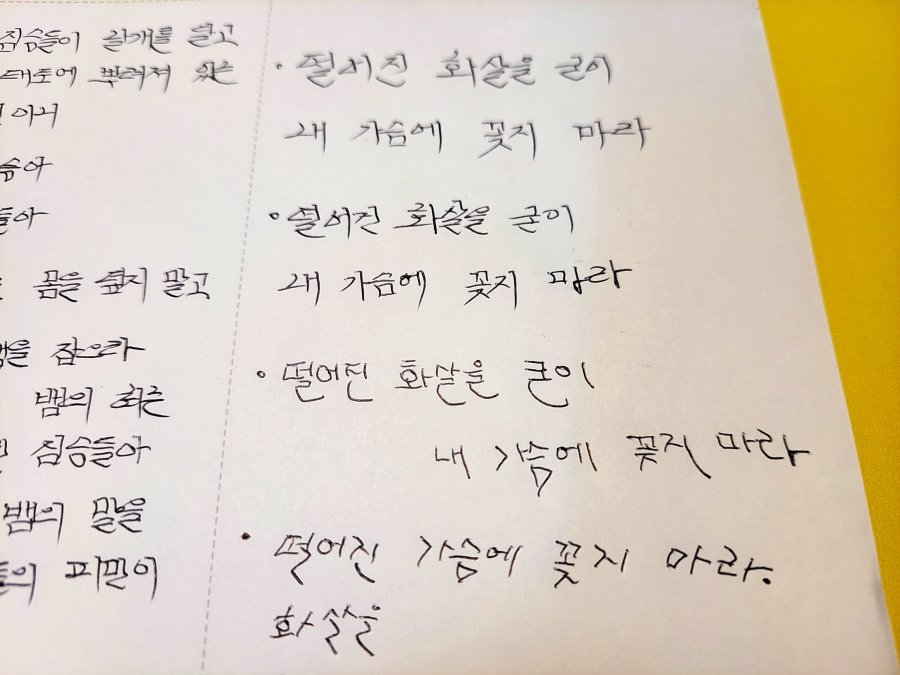 짐승들이 날개를 달고
태초에 뿌려져 있는
이
슴아
들아
몸을 숨지 말고
을 잡으라
뱀의 최초
짐승들아
뱀의 말을
들의 피밀이
· 떨어진 화살을 굳이
내 가슴에 꽂지 마라
· 떨어진 화살을 굳이
내 가슴에 꽂지 마라
· 떨어진 화살을 굳이
내 가슴에 꽂지 마라
· 떨어진 가슴에 꽂지 마라.
화살을